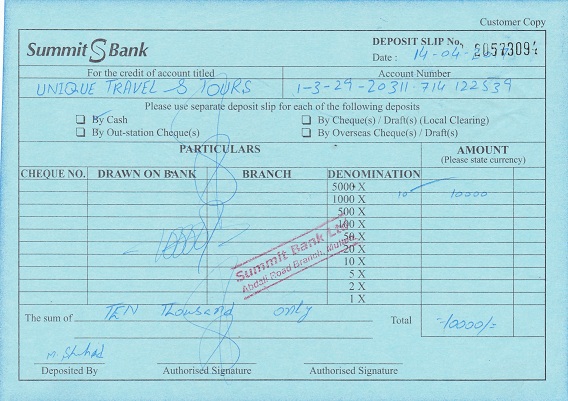 Customer Copy
Summit S Bank
DEPOSIT SLIP No.
Date : 14-04-
For the credit of account titled
Account Number
UNIQUE TRAVEL & TOURS
1-3-29-20311-714-122539
Please use separate deposit slip for each of the following deposits
By Cash
By Cheque(s) / Draft(s) (Local Clearing)
By Out-station Cheque(s)
By Overseas Cheque(s) / Draft(s)
PARTICULARS
AMOUNT
(Please state currency)
CHEQUE NO. DRAWN ON BANK BRANCH DENOMINATION
5000 X
1000 X 10 10000
500 X
100 X
50 X
20 X
10 X
5 X
2 X
1 X
Summit Bank Ltd
Abdali Road Branch, Multan
The sum of TEN Thousand only
Total -10000/=
Deposited By
Authorised Signature
Authorised Signature